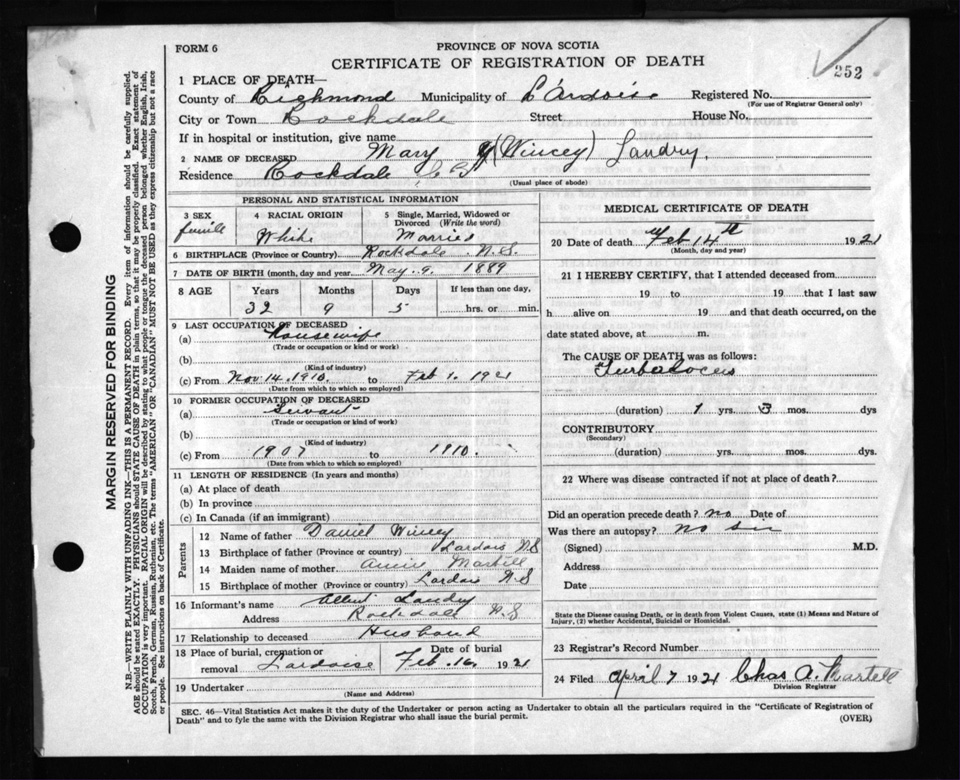 FORM 6
PROVINCE OF NOVA SCOTIA
CERTIFICATE OF REGISTRATION OF DEATH
252
1 PLACE OF DEATH—
County of Richmond Municipality of L'Ardoise Registered No.
(For use of Registrar General only)
City or Town Rockdale Street House No.
If in hospital or institution, give name
2 NAME OF DECEASED Mary (Wincey) Landry.
Residence Rockdale
(Usual place of abode)
PERSONAL AND STATISTICAL INFORMATION
3 SEX 4 RACIAL ORIGIN 5 Single, Married, Widowed or Divorced (Write the word)
female White Married
6 BIRTHPLACE (Province or Country) Rockdale N.S.
7 DATE OF BIRTH (month, day and year) May. 9. 1889
8 AGE Years Months Days If less than one day,
32 9 5 hrs. or min.
9 LAST OCCUPATION OF DECEASED
(a) Housewife
(Trade or occupation or kind or work)
(b)
(Kind of industry)
(c) From Nov. 14. 1910. to Feb 1. 1921
(Date from which to which so employed)
10 FORMER OCCUPATION OF DECEASED
(a) Servant
(Trade or occupation or kind of work)
(b)
(Kind of industry)
(c) From 1907 to 1910.
(Date from which to which so employed)
11 LENGTH OF RESIDENCE (In years and months)
(a) At place of death
(b) In province
(c) In Canada (if an immigrant)
Parents
12 Name of father Daniel Wincey
13 Birthplace of father (Province or country) Lardois N S
14 Maiden name of mother Annie Martell
15 Birthplace of mother (Province or country) Lardois N S
16 Informant's name Albert Landry
Address Rockdale N S
17 Relationship to deceased Husband
18 Place of burial, cremation or removal Lardoise Date of burial Feb. 16. 1921
19 Undertaker
(Name and Address)
MEDICAL CERTIFICATE OF DEATH
20 Date of death Feb 14th 1921
(Month, day and year)
21 I HEREBY CERTIFY, that I attended deceased from
19 to 19 that I last saw
h alive on 19 and that death occurred, on
date stated above, at m.
The CAUSE OF DEATH was as follows:
(duration) 1 yrs. 3 mos. dys
CONTRIBUTORY
(Secondary)
(duration) yrs. mos. dys.
22 Where was disease contracted if not at place of death?
Did an operation precede death? no Date of
Was there an autopsy? no sir
(Signed) M.D.
Address
Date
State the Disease causing Death, or in death from Violent Causes, state (1) Means and Nature of
Injury, (2) whether Accidental, Suicidal or Homicidal.
23 Registrar's Record Number
24 Filed April 7 1921 Chas A. Martell
Division Registrar
SEC. 46—Vital Statistics Act makes it the duty of the Undertaker or person acting as Undertaker to obtain all the particulars required in the "Certificate of Registration of
Death" and to fyle the same with the Division Registrar who shall issue the burial permit.
(OVER)
MARGIN RESERVED FOR BINDING
N.B.—WRITE PLAINLY WITH UNFADING INK—THIS IS A PERMANENT RECORD. Every item of information should be carefully supplied.
AGE should be stated EXACTLY. PHYSICIANS should STATE CAUSE OF DEATH in plain terms, so that it may be properly classified. Exact statement of
OCCUPATION is very important. RACIAL ORIGIN will be described by stating to what people or tongue the deceased person belonged whether English, Irish,
Scotch, French, German, Russian, Ruthenian, etc. The terms "AMERICAN" OR "CANADIAN" MUST NOT BE USED as they express citizenship but not a race
or people. See instructions on back of Certificate.